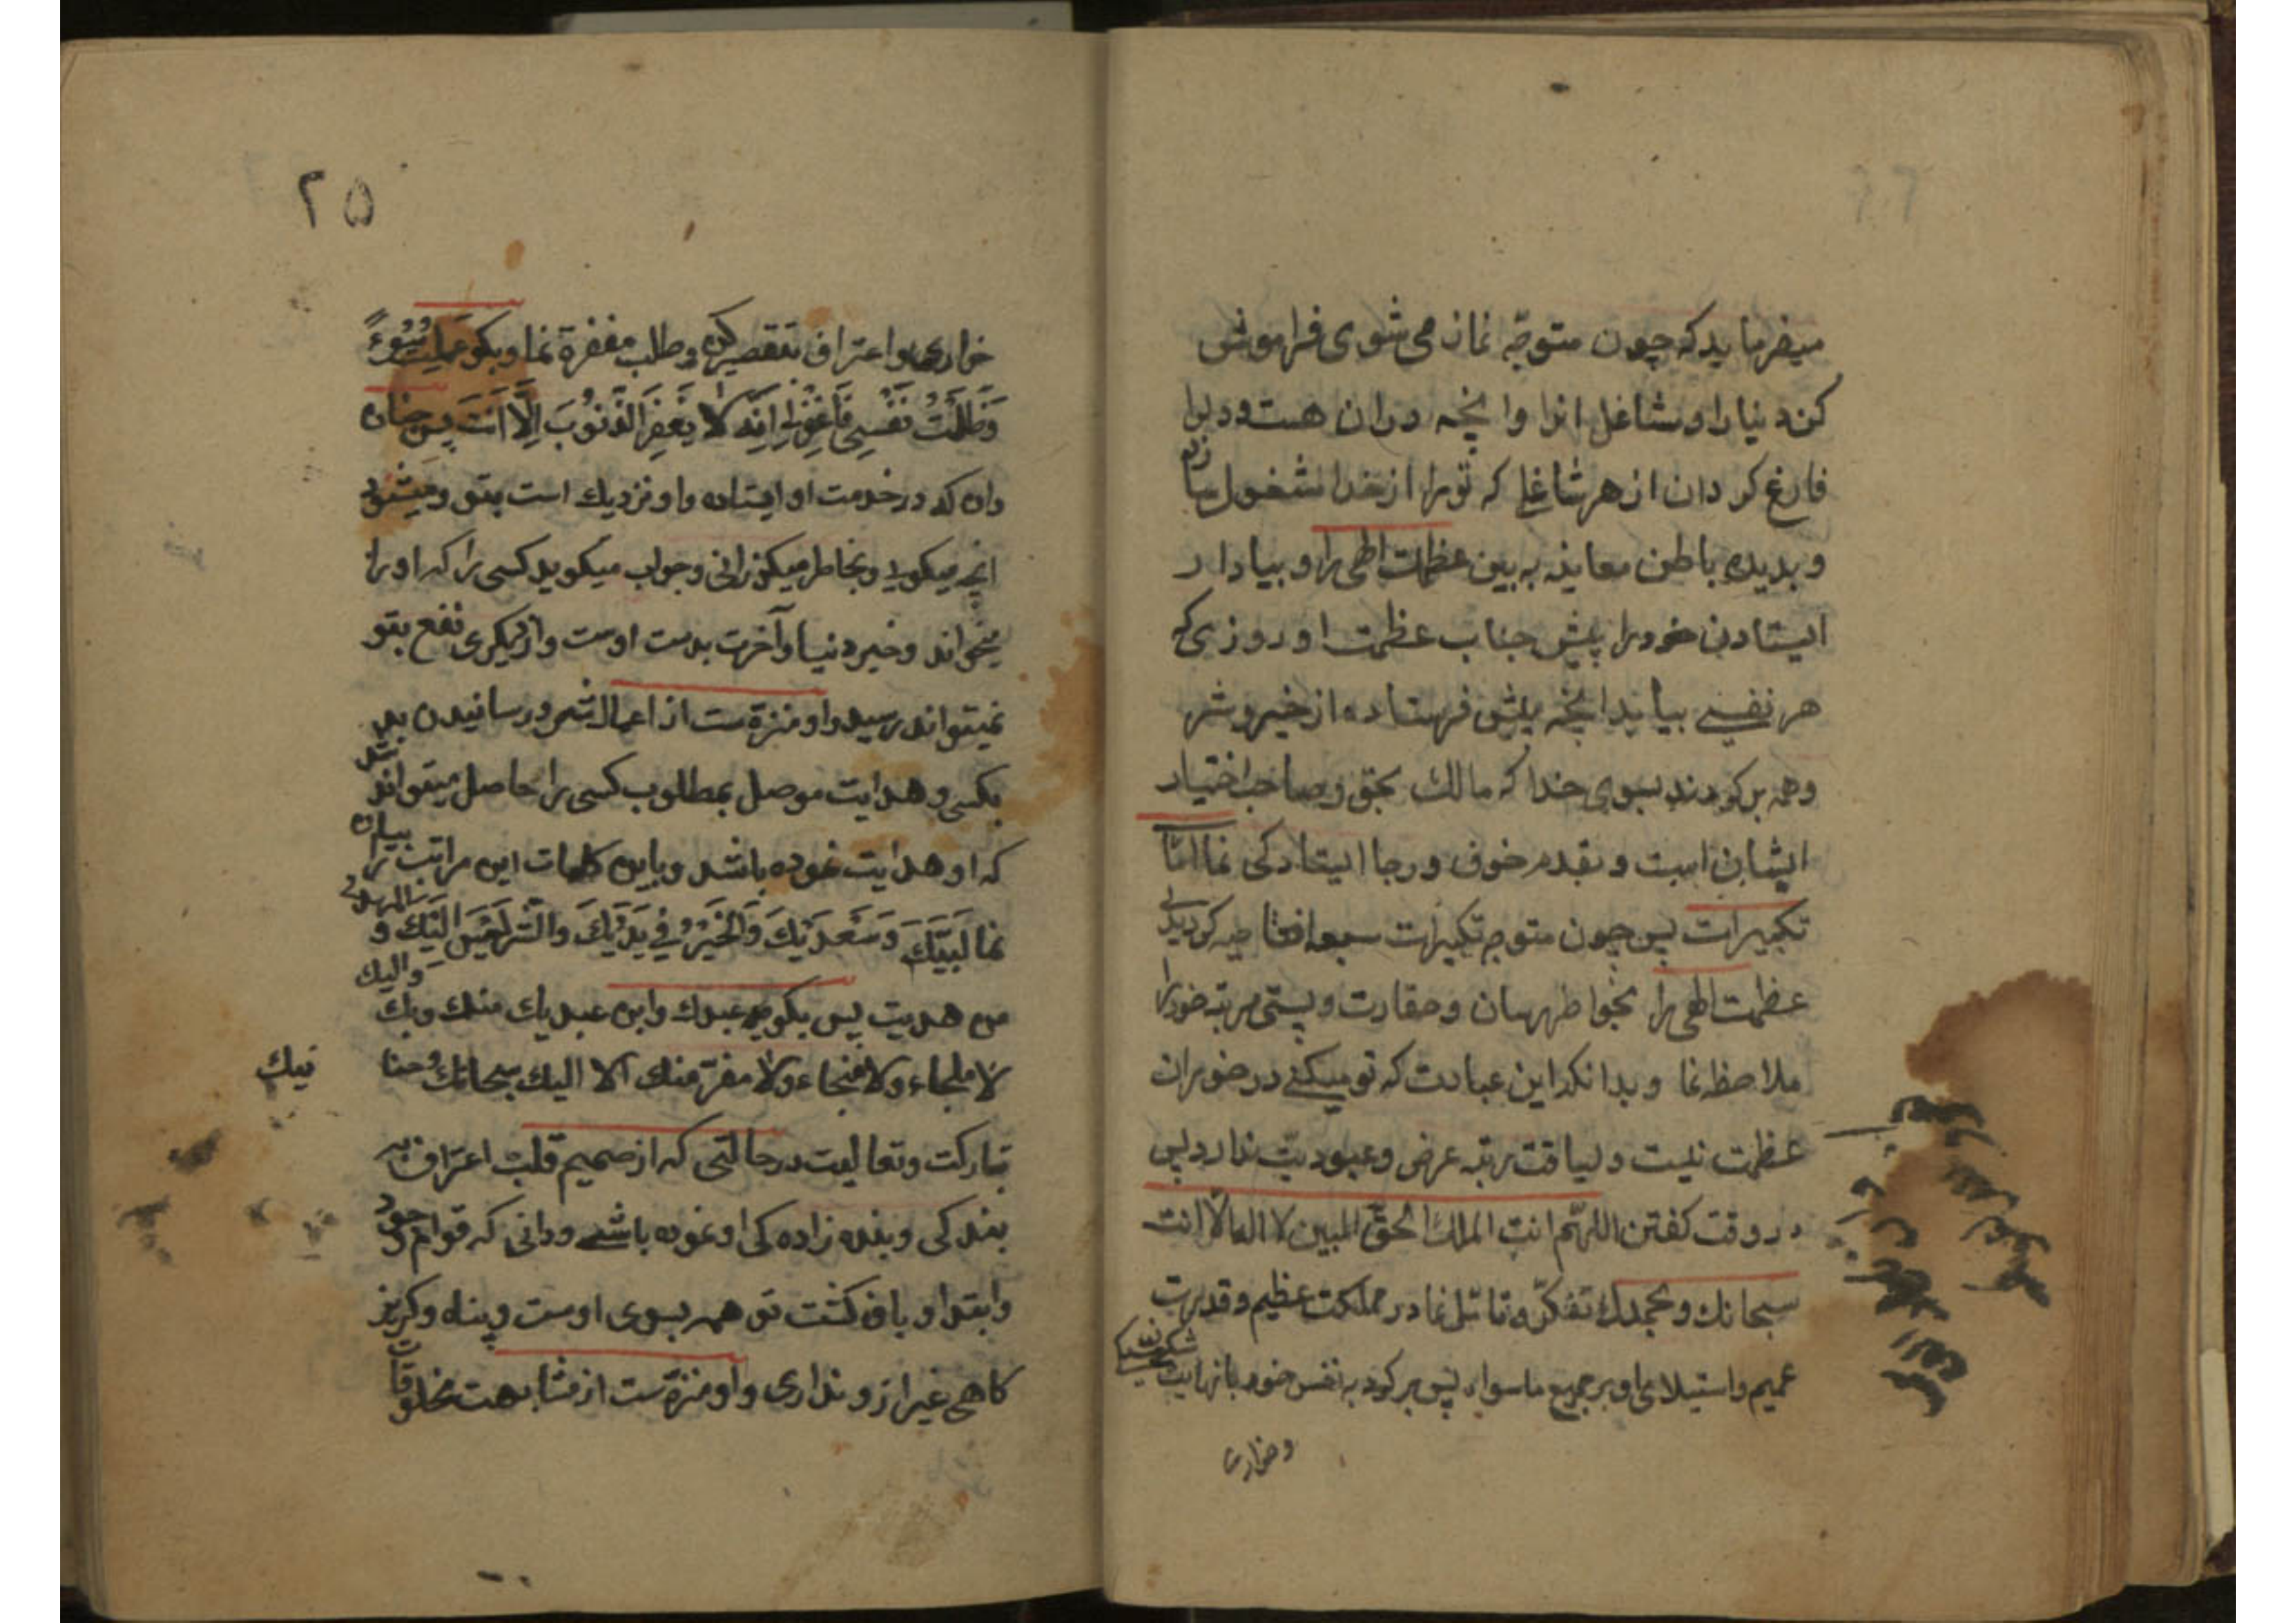 میفرماید که چون متوجّه نماز می شوی فراموش
کن دنیا را و مشاغل انرا وانچه دران هست و دلرا
فارغ کردان از هر شاغلی که تورا از خدا مشغول سازد
و بدیده باطن معاینه به بین عظمت الهی را و بیاد ار
ایستادن خود را پیش جناب عظمت او روزی که
هر نفسی بیابد انچه پیش فرستاده از خیر و شر
وهمه برکردند بسوی خدا که مالک بحق و صاحب اختیار
ایشان است و بقدم خوف و رجا ایستادکی نما امّا
تکبیرات پس چون متوجه تکبیرات سبعه افتتاحیه کردیدی
عظمت الهی را بخواطر رسان و حقارت و پستی مرتبه خود را
ملاحظه نما و بدانکه این عبادت که تو میکنی در خور ان
عظمت نیست و لیاقت رتبه عرض و عبودیّت ندارد پس
در وقت کفتن اللهّم انت الملک الحقّ المبین لا اله الّا انت
سبحانک و بحمدک تفکرّ و تامّل نما در مملکت عظیم و قدرت
عمیم و استیلای او بر جمیع ماسواء پس برکرد به نفس خود بانهایت شکستکی
و خواری
۲۵
خواری و اعتراف بتقصیر کرده و طلب مغفرة نما و بکو عملت سُوءً
وَظَلَمْتُ نَفْسِی فَاغْفِرْلی اِنَّهُ لا یَغْفِرَ الذُّنُوبَ اِلّا اَنْتَ پس چنان
دان که در خدمت او ایستاده و او نزدیک است بتو و میشنود
انچه میکویی و بخاطر میکذرانی و جواب میکوید کسی را که او را
میخواند و خیر دنیا و آخرت بدست اوست و از دیکری نفع بتو
نمیتواند رسید و او منزّه ست از اعمال شر و رسانیدن بدی
بکسی و هدایت موصل بمطلوب کسی را حاصل میتواند شد
که او هدایت نموده باشد و باین کلمات این مراتب را بیان
نما لَبَیَّکَ وَ سَعْدَیْکَ وَالْخَیْرُ فی یَدَیْکَ وَالشَّر لَیْسَ اِلَیْکَ و المهدی
من هدیت پس بکو عبدک و ابن عبدیک منک و بک والیک
لا ملجاء ولا منجاء ولا مفرّ منک الا الیک سبحانک و حنا
نیک
تبارکت و تعالیت در حالتی که از صمیم قلب اعتراف به
بندکی و بنده زاده کی او نموده باشی و دانی که قوام وجود
و ابتدا و بازکشت تو همه بسوی اوست و پناه و کریز
کاهی غیر از و نداری و او منزّه ست از مشابهت مخلوقات